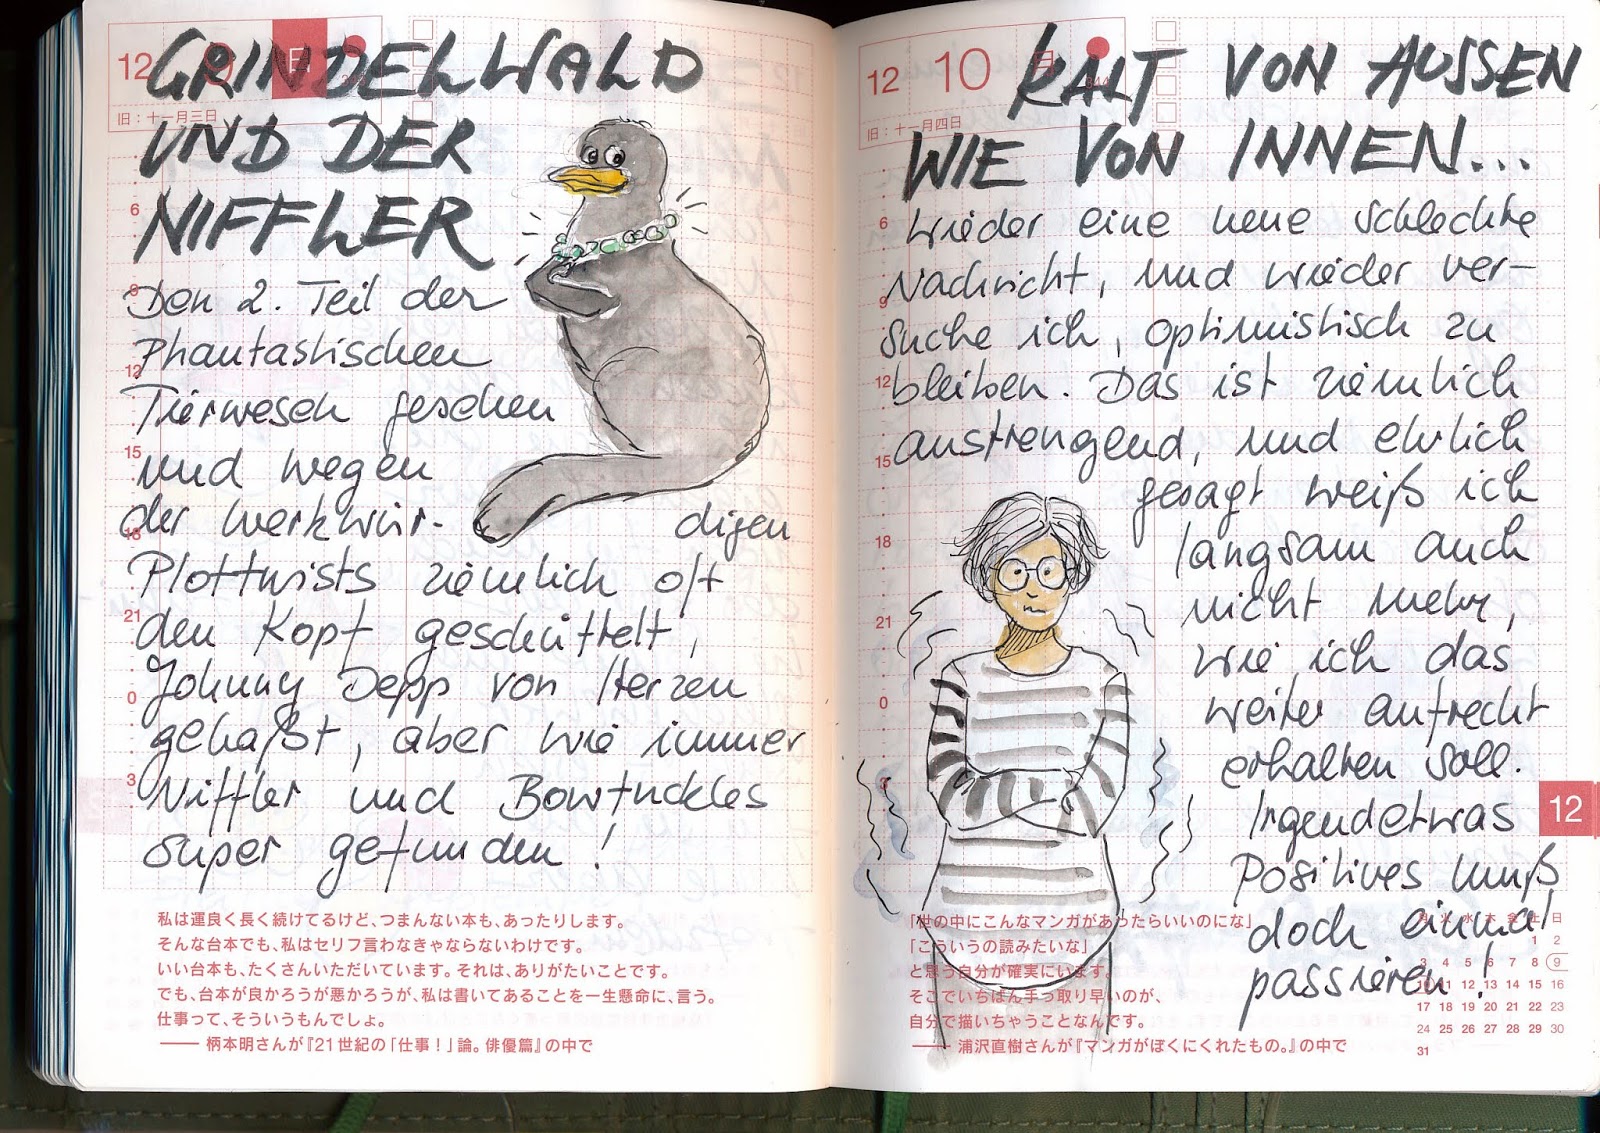 12 9 日
旧：十一月三日
GRINDELWALD
UND DER
NIFFLER
Den 2. Teil der
Phantastischen
Tierwesen gesehen
und wegen
der merkwür- digen
Plottwists ziemlich oft
den Kopf geschüttelt,
Johnny Depp von Herzen
gehaßt, aber wie immer
Niffler und Bowtruckles
super gefunden!
6
9
12
15
18
21
0
3
私は運良く長く続けてるけど、つまんない本も、あったりします。
そんな台本でも、私はセリフ言わなきゃならないわけです。
いい台本も、たくさんいただいています。それは、ありがたいことです。
でも、台本が良かろうが悪かろうが、私は書いてあることを一生懸命に、言う。
仕事って、そういうもんでしょ。
—— 柄本明さんが『21世紀の「仕事！」論。俳優篇』の中で
12 10 月
旧：十一月四日
KALT VON AUSSEN
WIE VON INNEN...
Wieder eine neue schlechte
Nachricht, und wieder ver-
suche ich, optimistisch zu
bleiben. Das ist ziemlich
anstrengend, und ehrlich
gesagt weiß ich
langsam auch
nicht mehr,
wie ich das
weiter aufrecht
erhalten soll.
Irgendetwas
Positives muß
doch einmal
passieren!
6
9
12
15
18
21
0
3
12
「世の中にこんなマンガがあったらいいのにな」
「こういうの読みたいな」
と思う自分が確実にいます。
そこでいちばん手っ取り早いのが、
自分で描いちゃうことなんです。
—— 浦沢直樹さんが『マンガがぼくにくれたもの。』の中で
月 火 水 木 金 土 日
1 2
3 4 5 6 7 8 9
10 11 12 13 14 15 16
17 18 19 20 21 22 23
24 25 26 27 28 29 30
31